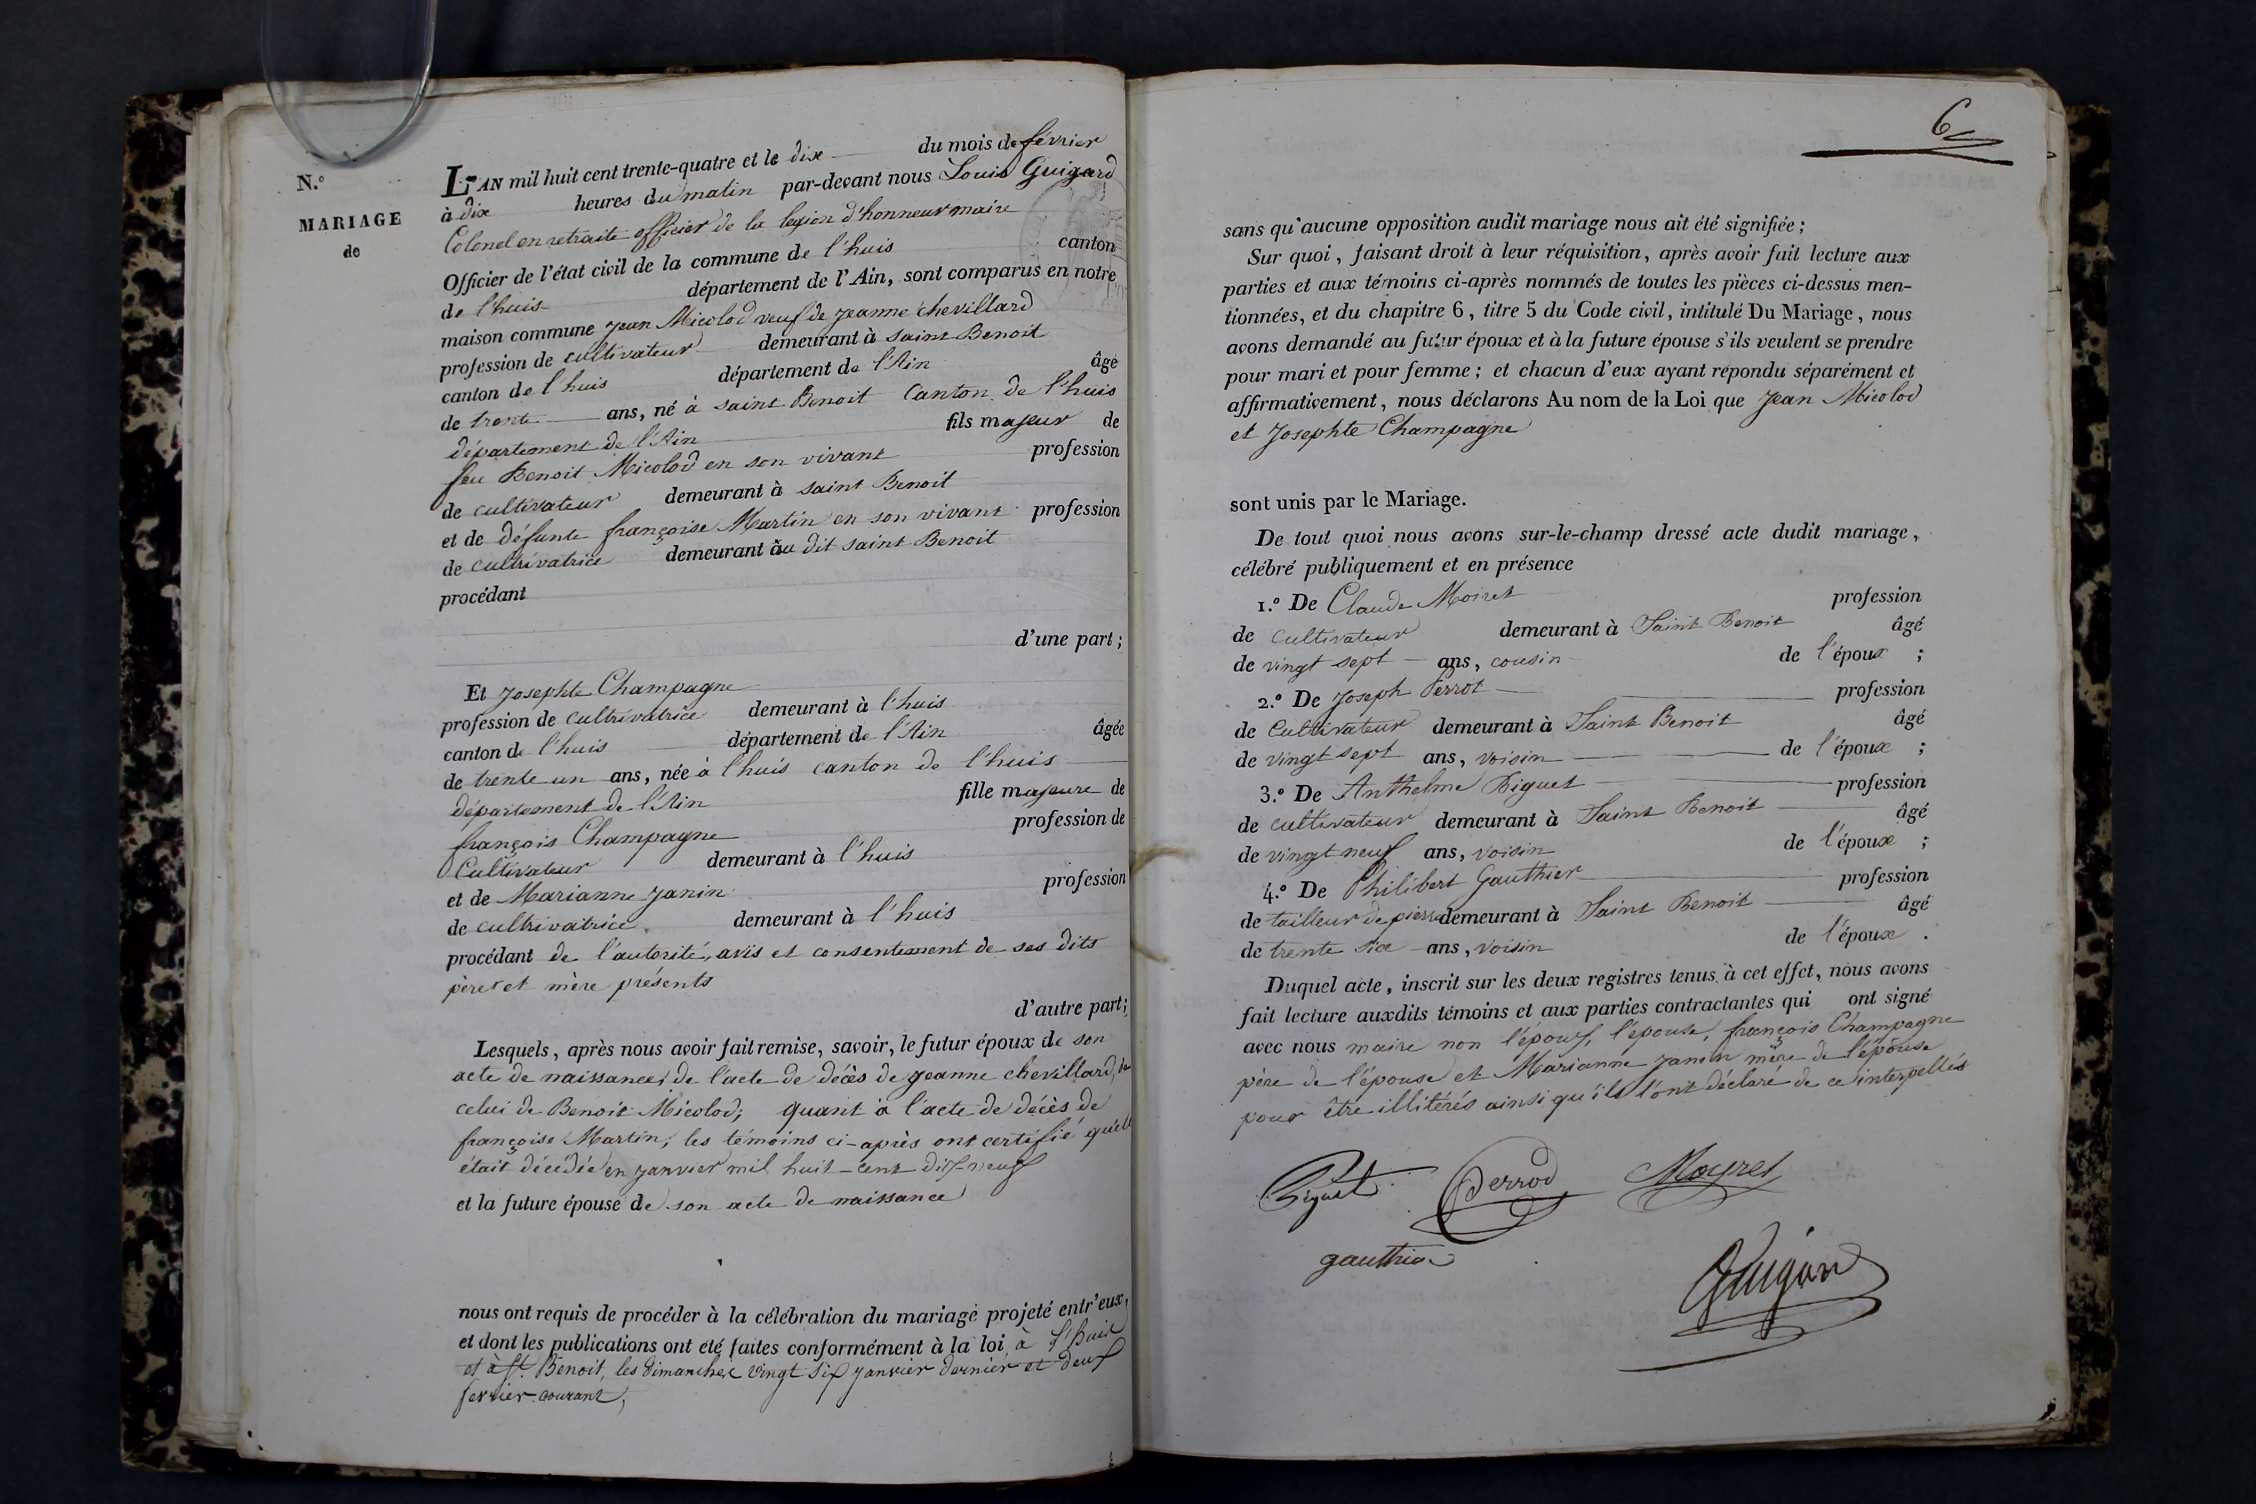 N.º
MARIAGE
de
L'AN mil huit cent trente-quatre et le dix du mois de février
à dix heures du matin par-devant nous Louis Guigard
Colonel en retraite officier de la legion d'honneur maire
Officier de l'état civil de la commune de l'huis canton
de l'huis département de l'Ain, sont comparus en notre
maison commune Jean Micolod veuf de Jeanne Chevillard
profession de cultivateur demeurant à saint Benoit
canton de l'huis département de l'Ain âgé
de trente ans, né à saint Benoit Canton de l'huis
département de l'Ain fils majeur de
feu Benoit Micolod en son vivant profession
de cultivateur demeurant à saint Benoit
et de défunte françoise Martin en son vivant profession
de cultivatrice demeurant au dit saint Benoit
procédant
d'une part;
Et Josephte Champagne
profession de cultivatrice demeurant à l'huis
canton de l'huis département de l'Ain âgée
de trente un ans, née à l'huis canton de l'huis
département de l'Ain fille majeure de
françois Champagne profession de
Cultivateur demeurant à l'huis
et de Marianne Janin profession
de cultivatrice demeurant à l'huis
procédant de l'autorité, avis et consentement de ses dits
père et mère présents
d'autre part;
Lesquels, après nous avoir fait remise, savoir, le futur époux de son
acte de naissance, de l'acte de décès de Jeanne chevillard, de
celui de Benoit Micolod; quant à l'acte de décès de
françoise Martin, les témoins ci-après ont certifié qu'elle
était décédée en janvier mil huit-cent dix-neuf
et la future épouse de son acte de naissance
nous ont requis de procéder à la célébration du mariage projeté entr'eux,
et dont les publications ont été faites conformément à la loi à l'huis
et à St Benoit, les Dimanches vingt six janvier dernier et deux
fevrier courant,
6
sans qu'aucune opposition audit mariage nous ait été signifiée;
Sur quoi, faisant droit à leur réquisition, après avoir fait lecture aux
parties et aux témoins ci-après nommés de toutes les pièces ci-dessus men-
tionnées, et du chapitre 6, titre 5 du Code civil, intitulé Du Mariage, nous
avons demandé au futur époux et à la future épouse s'ils veulent se prendre
pour mari et pour femme; et chacun d'eux ayant répondu séparément et
affirmativement, nous déclarons Au nom de la Loi que Jean Micolod
et Josephte Champagne
sont unis par le Mariage.
De tout quoi nous avons sur-le-champ dressé acte dudit mariage,
célébré publiquement et en présence
1.º De Claude Moiret profession
de cultivateur demeurant à Saint Benoit âgé
de vingt sept ans, cousin de l'époux ;
2.º De Joseph Perrot profession
de Cultivateur demeurant à Saint Benoit âgé
de vingt sept ans, voisin de l'époux ;
3.º De Anthelme Biguet profession
de cultivateur demeurant à Saint Benoit âgé
de vingt neuf ans, voisin de l'époux ;
4.º De Philibert Gauthier profession
de tailleur de pierre demeurant à Saint Benoit âgé
de trente six ans, voisin de l'époux .
Duquel acte, inscrit sur les deux registres tenus à cet effet, nous avons
fait lecture auxdits témoins et aux parties contractantes qui ont signé
avec nous maire non l'époux, l'épouse, françois Champagne
père de l'épouse et Marianne Janin mère de l'épouse
pour être illitérés ainsi qu'ils l'ont déclaré de ce interpellés
Biguet Perrod Moyret
gauthier
Guigard